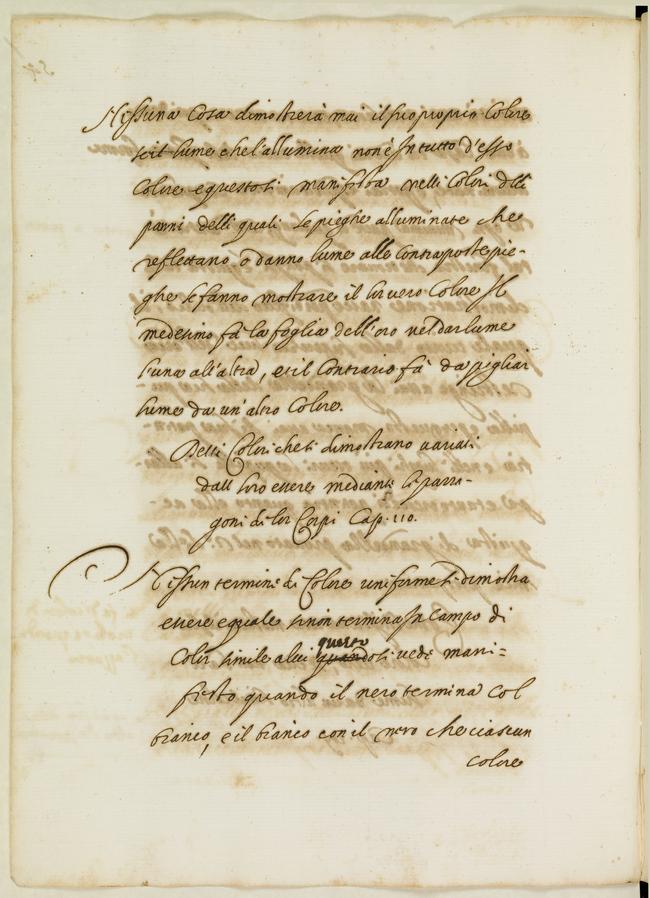 Nissuna cosa dimostrerà mai il suo proprio Colore
se il lume che l'allumina non è In tutto d'esso
Colore e questo si manifesta nelli Colori delli
panni delli quali le pieghe alluminate che
reflettano o danno lume alle Contraposte pie-
ghe le fanno mostrare il lor vero Colore Il
medesimo fà la foglia dell'oro nel dar lume
l'una all'altra, et il Contrario fà da pigliar
lume da un'altro Colore.
Delli Colori che si dimostrano variati
dall loro essere mediante li para-
goni di lor Corpi Cap. 110.
Nissun termine di Colore uniforme si dimostra
essere eguale se non termina In Campo di
Color simile a lui questo si vede mani-
festo quando il nero termina col
bianco, e il bianco con il nero che ciascun
colore